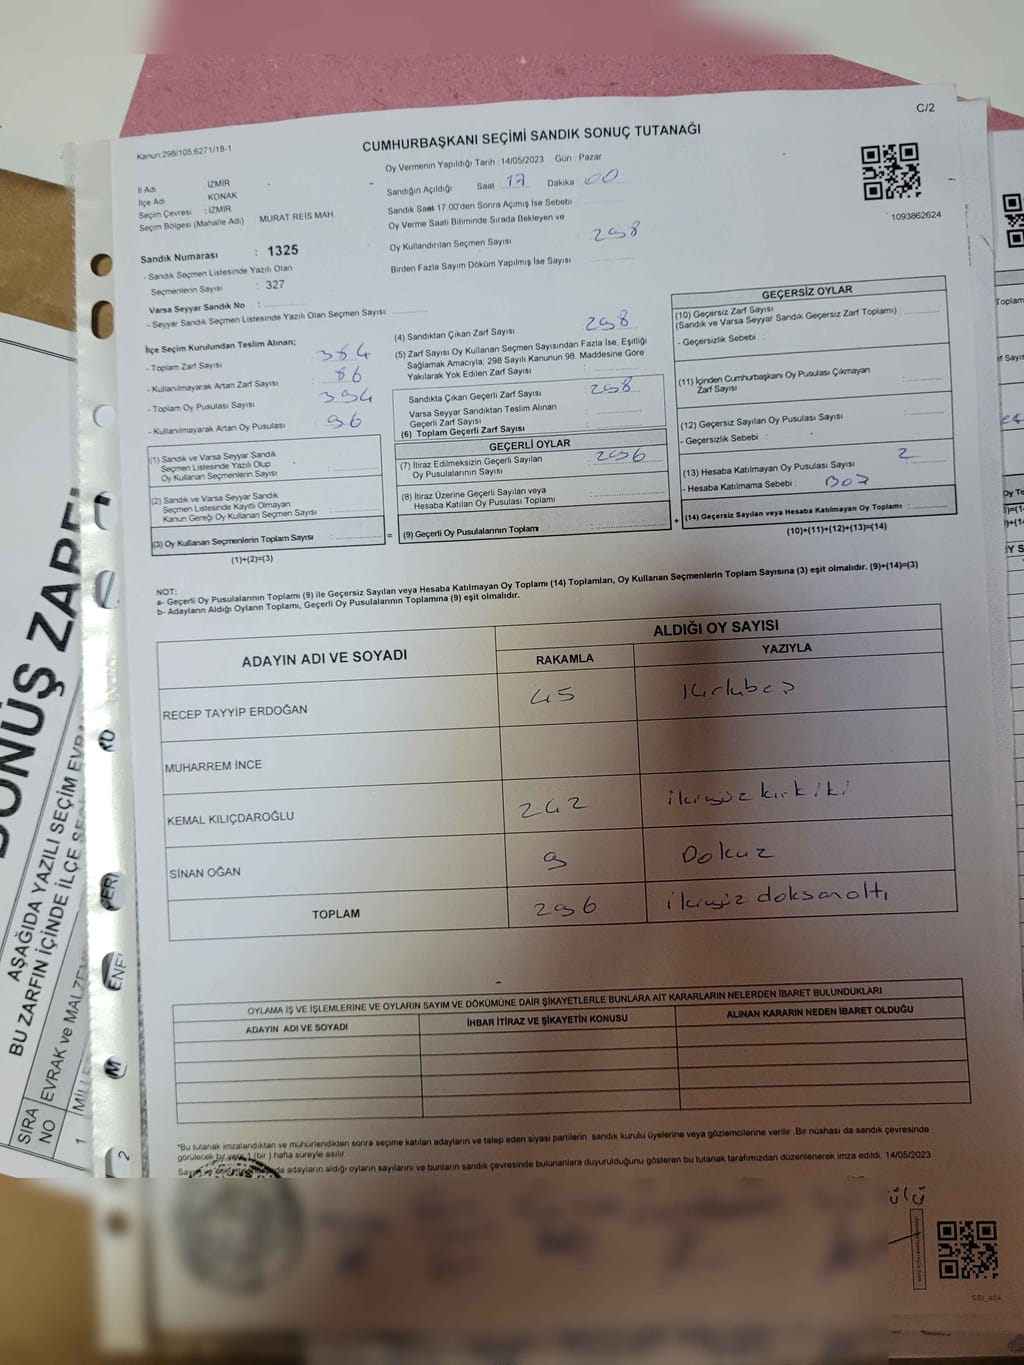 C/2
Kanun:298/105;6271/18-1
CUMHURBAŞKANI SEÇİMİ SANDIK SONUÇ TUTANAĞI
Oy Vermenin Yapıldığı Tarih :14/05/2023 Gün : Pazar
İl Adı : İZMİR
İlçe Adı KONAK
Seçim Çevresi : İZMİR
Seçim Bölgesi (Mahalle Adı) : MURAT REIS MAH.
Sandığın Açıldığı Saat 17 Dakika 00
Sandık Saat 17.00'den Sonra Açımış İse Sebebi :
Oy Verme Saati Bitiminde Sırada Bekleyen ve
Oy Kullandırılan Seçmen Sayısı 298
Birden Fazla Sayım Döküm Yapılmış İse Sayısı :
1093862624
Sandık Numarası : 1325
- Sandık Seçmen Listesinde Yazılı Olan
Seçmenlerin Sayısı : 327
Varsa Seyyar Sandık No :
- Seyyar Sandık Seçmen Listesinde Yazılı Olan Seçmen Sayısı:
İlçe Seçim Kurulundan Teslim Alınan;
- Toplam Zarf Sayısı : 384
- Kullanılmayarak Artan Zarf Sayısı : 86
- Toplam Oy Pusulası Sayısı : 394
- Kullanılmayarak Artan Oy Pusulası : 96
(1) Sandık ve Varsa Seyyar Sandık
Seçmen Listesinde Yazılı Olup
Oy Kullanan Seçmenlerin Sayısı :
(2) Sandık ve Varsa Seyyar Sandık
Seçmen Listesinde Kayıtlı Olmayan
Kanun Gereği Oy Kullanan Seçmen Sayısı :
(3) Oy Kullanan Seçmenlerin Toplam Sayısı :
(1)+(2)=(3)
(4) Sandıktan Çıkan Zarf Sayısı : 298
(5) Zarf Sayısı Oy Kullanan Seçmen Sayısından Fazla İse, Eşitliği
Sağlamak Amacıyla; 298 Sayılı Kanunun 98. Maddesine Göre
Yakılarak Yok Edilen Zarf Sayısı :
Sandıkta Çıkan Geçerli Zarf Sayısı : 298
Varsa Seyyar Sandıktan Teslim Alınan
Geçerli Zarf Sayısı :
(6) Toplam Geçerli Zarf Sayısı :
GEÇERLİ OYLAR
(7) İtiraz Edilmeksizin Geçerli Sayılan
Oy Pusulalarının Sayısı : 296
(8) İtiraz Üzerine Geçerli Sayılan veya
Hesaba Katılan Oy Pusulası Toplamı :
= (9) Geçerli Oy Pusulalarının Toplamı :
GEÇERSİZ OYLAR
(10) Geçersiz Zarf Sayısı
(Sandık ve Varsa Seyyar Sandık Geçersiz Zarf Toplamı) :
- Geçersizlik Sebebi :
(11) İçinden Cumhurbaşkanı Oy Pusulası Çıkmayan
Zarf Sayısı :
(12) Geçersiz Sayılan Oy Pusulası Sayısı :
- Geçersizlik Sebebi :
(13) Hesaba Katılmayan Oy Pusulası Sayısı : 2
- Hesaba Katılmama Sebebi : Boş
+ (14) Geçersiz Sayılan veya Hesaba Katılmayan Oy Toplamı :
(10)+(11)+(12)+(13)=(14)
NOT:
a- Geçerli Oy Pusulalarının Toplamı (9) ile Geçersiz Sayılan veya Hesaba Katılmayan Oy Toplamı (14) Toplamları, Oy Kullanan Seçmenlerin Toplam Sayısına (3) eşit olmalıdır. (9)+(14)=(3)
b- Adayların Aldığı Oyların Toplamı, Geçerli Oy Pusulalarının Toplamına (9) eşit olmalıdır.
ADAYIN ADI VE SOYADI
ALDIĞI OY SAYISI
RAKAMLA YAZIYLA
RECEP TAYYİP ERDOĞAN 45 Kırkbeş
MUHARREM İNCE
KEMAL KILIÇDAROĞLU 242 ikiyüz kırk iki
SİNAN OĞAN 9 Dokuz
TOPLAM 296 ikiyüz doksanaltı
OYLAMA İŞ VE İŞLEMLERİNE VE OYLARIN SAYIM VE DÖKÜMÜNE DAİR ŞİKAYETLERLE BUNLARA AİT KARARLARIN NELERDEN İBARET BULUNDUKLARI
ADAYIN ADI VE SOYADI İHBAR İTİRAZ VE ŞİKAYETİN KONUSU ALINAN KARARIN NEDEN İBARET OLDUĞU
*Bu tutanak imzalandıktan ve mühürlendikten sonra seçime katılan adayların ve talep eden siyasi partilerin sandık kurulu üyelerine veya gözlemcilerine verilir. Bir nüshası da sandık çevresinde
görülecek bir yere 1 (bir) hafta süreyle asılır.
adayların aldığı oyların sayılarını ve bunların sandık çevresinde bulunanlara duyurulduğunu gösteren bu tutanak tarafımızdan düzenlenerek imza edildi. 14/05/2023
AŞAĞIDA YAZILI SEÇİM EVRA
BU ZARFIN İÇİNDE İLÇE SEÇ
SIRA
NO
EVRAK ve MALZEM
1